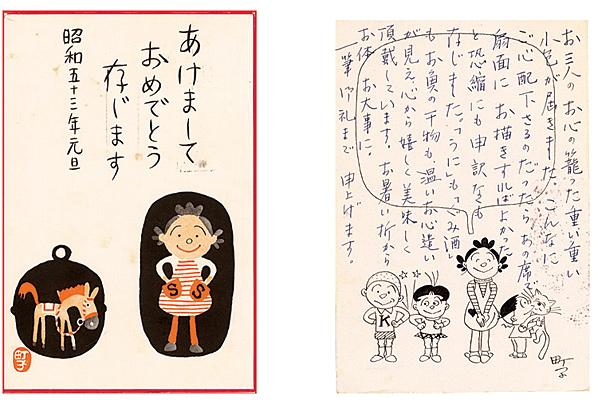 あけまして
おめでとう
存じます
昭和五十三年元旦
S S
町子
お三人のお心の籠った重い重い
小包が届きました。こんなに
ご心配下さるのだったらあの席で
扇面にお描きすればよかった
と恐縮にも申訳なくも
存じました。「うに」も
もお魚の干物も、温いお心遣い
が見え心から嬉しく美味しく
頂戴しています。お暑い折から
お体お大事に。
一筆御礼まで申上げます。
K
町子